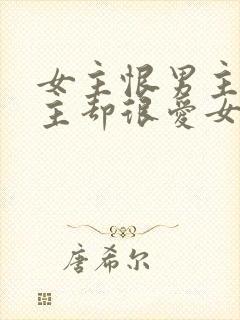 女主恨男主
主却很爱女
唐希尔